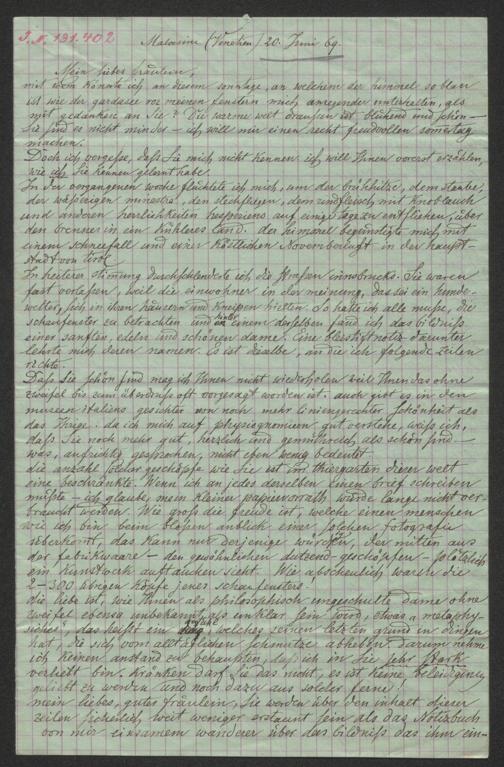 I.N. 191.402
Malcesine (Venetien) 20. Juni 69.
Mein liebes fräulein,
mit wem könnte ich an diesem sonntage, an welchem der himmel so blau
ist wie der gardasee vor meinen fenstern mich anregender unterhalten, als
mit gedanken an Sie? Die warme welt draußen ist blühend und schön –
Sie sind es nicht minder – ich will mir einen recht freudvollen sonntag
machen.
Doch ich vergesse, daß Sie mich nicht kennen ich will Ihnen vorerst erzählen,
wie ich Sie kennen gelernt habe.
In der vergangenen woche flüchtete ich mich, um der brühhitze, dem staube,
der wässerigen minestra, den stechfliegen, dem rindfleisch mit knoblauch
und anderen herrlichkeiten hesperiens auf einige tage zu entfliehen, über
den brenner in ein kühleres land. der himmel begünstigte mich mit
einem schneefall und einer köstlichen Novemberluft in der haupt-
stadt von tirol.
In heiterer stimung durchschlenderte ich die straßen innsbrucks. Sie waren
fast verlassen, weil die einwohner in der meinung, das sei ein hunde-
wetter, sich in ihren häusern und kneipen hielten. So hatte ich alle muße, die
schaufenster zu betrachten und hinter einem derselben fand ich das bildniß
einer sanften, edeln und schönen dame. Eine bleistiftnotiz darunter
lehrte mich deren namen. Es ist dieselbe, an die ich folgende zeilen
richte.
Daß Sie schön sind mag ich Ihnen nicht wiederholen weil Ihnen das ohne
zweifel bis zum überdruß oft vorgesagt worden ist. auch gibt es in den
museen italiens gesichter von noch mehr liniengerechter schönheit als
das Ihrige. da ich mich auf physiognomieen gut verstehe, weiß ich,
daß Sie noch mehr gut, herzlich und gemüthreich, als schön sind –
was, aufrichtig gesprochen, nicht eben wenig bedeutet.
die anzahl solcher geschöpfe wie Sie ist im thiergarten dieser welt
eine beschränkte. Wenn ich an jedes derselben einen brief schreiben
müßte – ich glaube, mein kleiner papiervorrath würde lange nicht ver-
braucht werden. Wie groß die freude ist, welche einen menschen
wie ich bin beim bloßen anblick einer solchen fotografie
überkomt, das kann nur derjenige würdigen, der mitten aus
der fabrikwaare – den gewöhnlichen dutzend-geschöpfen – plötzlich
ein kunstwerk auftauchen sieht. Wie abscheulich waren die
2–300 übrigen köpfe jenes schaufensters!
die liebe ist, wie Ihnen als philosophisch ungeschulte dame ohne
zweifel ebenso unbekannt als unklar sein wird, etwas „metaphy-
sisches", das heißt ein, welches seinen letzten grund in dingen
hat, die sich vom alltäglichen schmutze abheben. Darum nehme
ich keinen anstand zu behaupten, daß ich in Sie sehr stark
verliebt bin. Kränken darf Sie das nicht, es ist keine beleidigung
geliebt zu werden und noch dazu aus solcher ferne!
mein liebes, gutes fräulein, Sie werden über den inhalt dieser
zeilen sicherlich, weit weniger erstaunt sein als das Notizbuch
von mir einsamem wanderer über das bildniß das ihm ein-